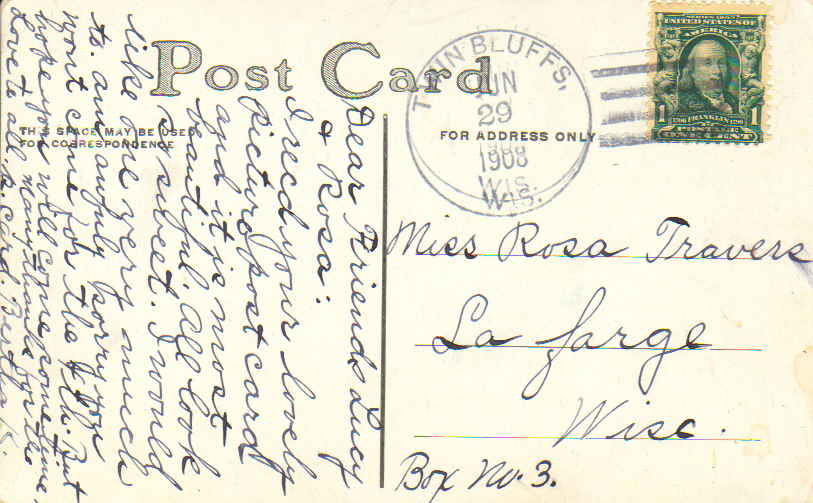 Post Card
THIS SPACE MAY BE USED
FOR CORRESPONDENCE
FOR ADDRESS ONLY
TWIN BLUFFS,
JUN
29
1908
WIS.
SERIES 1902
UNITED STATES OF
AMERICA
1 1
1706 FRANKLIN 1790
POSTAGE
ONE CENT
Dear Friends Lucy
& Rosa:
I recd your lovely
picture post card
and it is most
beautiful. All look
so sweet. I would
like one very much
to. am awfuly sorry you
wont come for the 4th. But
hope you will come some time.
Love to all, & many thanks for the
card. Bertha K.
Miss Rosa Travers
La farge
Wisc.
Box No. 3.